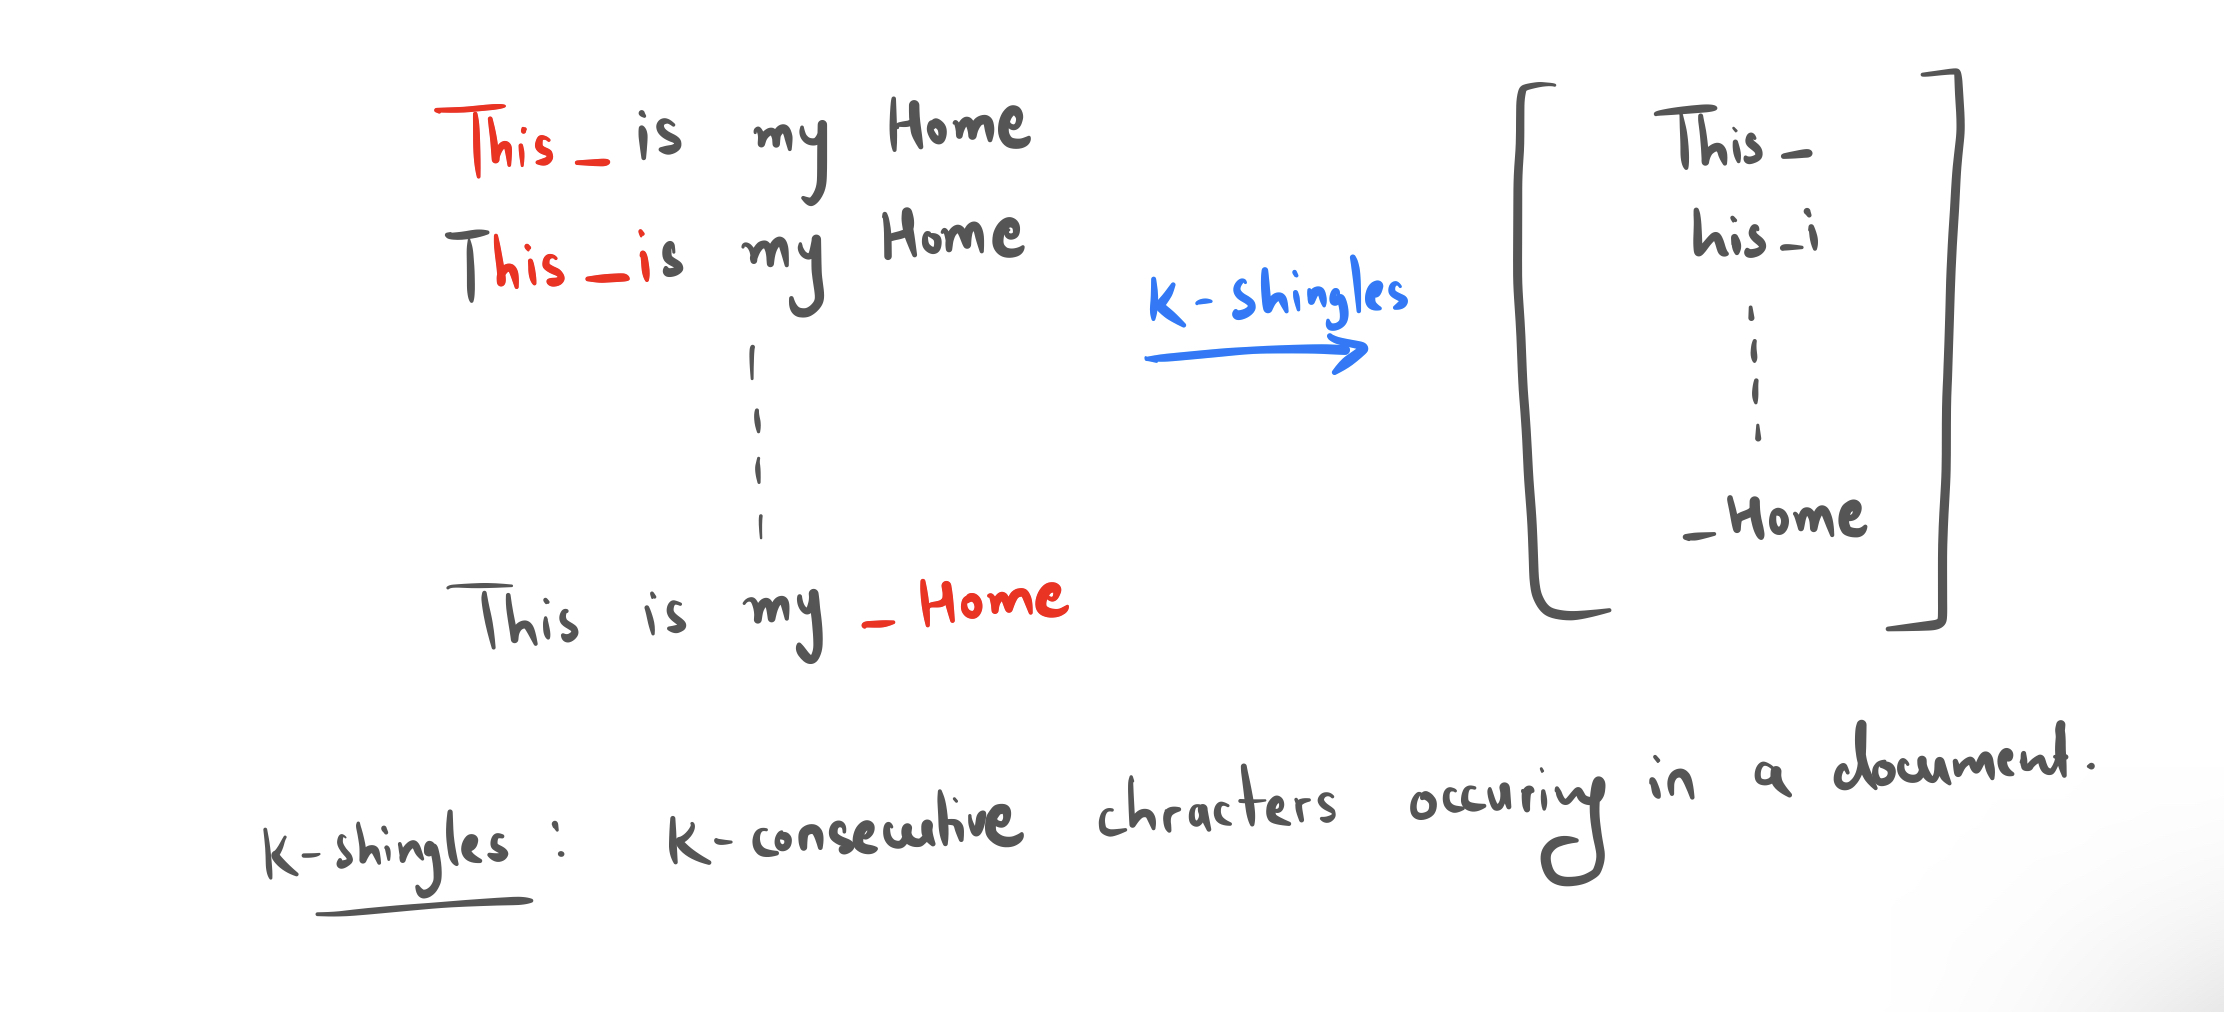 This_is my Home
This_is my Home
This is my_Home
K-shingles
This_
his_i
_Home
K-shingles : K-consecutive chracters occuring in a document.